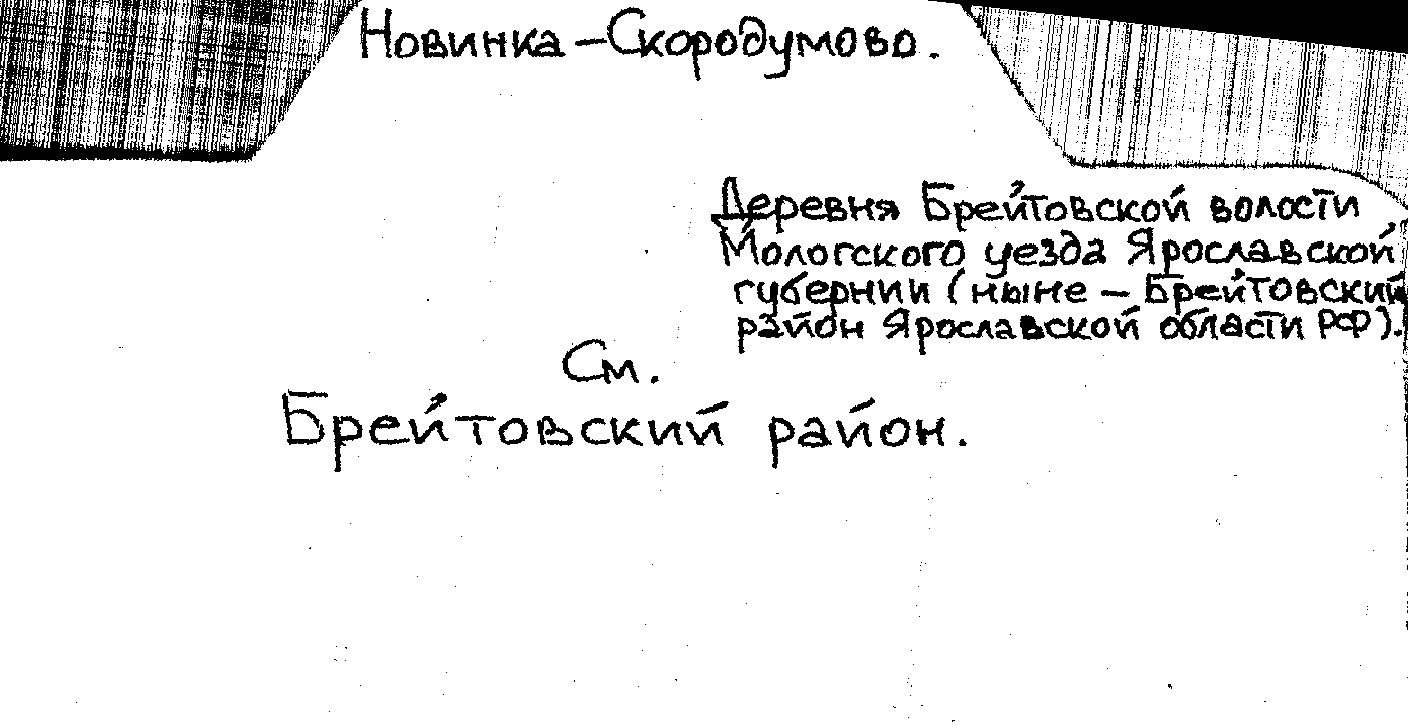 Новинка-Скородумово.
Деревня Брейтовской волости
Мологского уезда Ярославской
губернии (ныне - Брейтовский
район Ярославской области РФ).
См.
Брейтовский район.